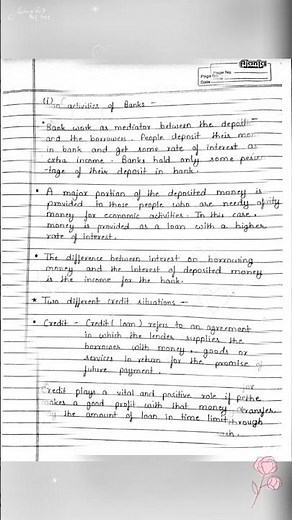 Ajanta
Page No.
Date
(i) Loan activities of Banks -
• Bank work as mediator between the
and the borrowers. People deposit their
in bank and get some rate of interest as
extra income. Banks hold only some
-tage of their deposit in bank.
• A major portion of the deposited money is
provided to those people who are needy of
money for economic activities. In this case,
money is provided as a loan with a higher
rate of interest.
• The difference between interest on borrowing
money and the interest of deposited money
is the income for the bank.
★ Two different credit situations -
• Credit - Credit (loan) refers to an agreement
in which the lender supplies the
borrower with money, goods or
services in return for the promise of
future payment.
Credit plays a vital and positive role if
makes a good profit with that money
the amount of loan in time limit